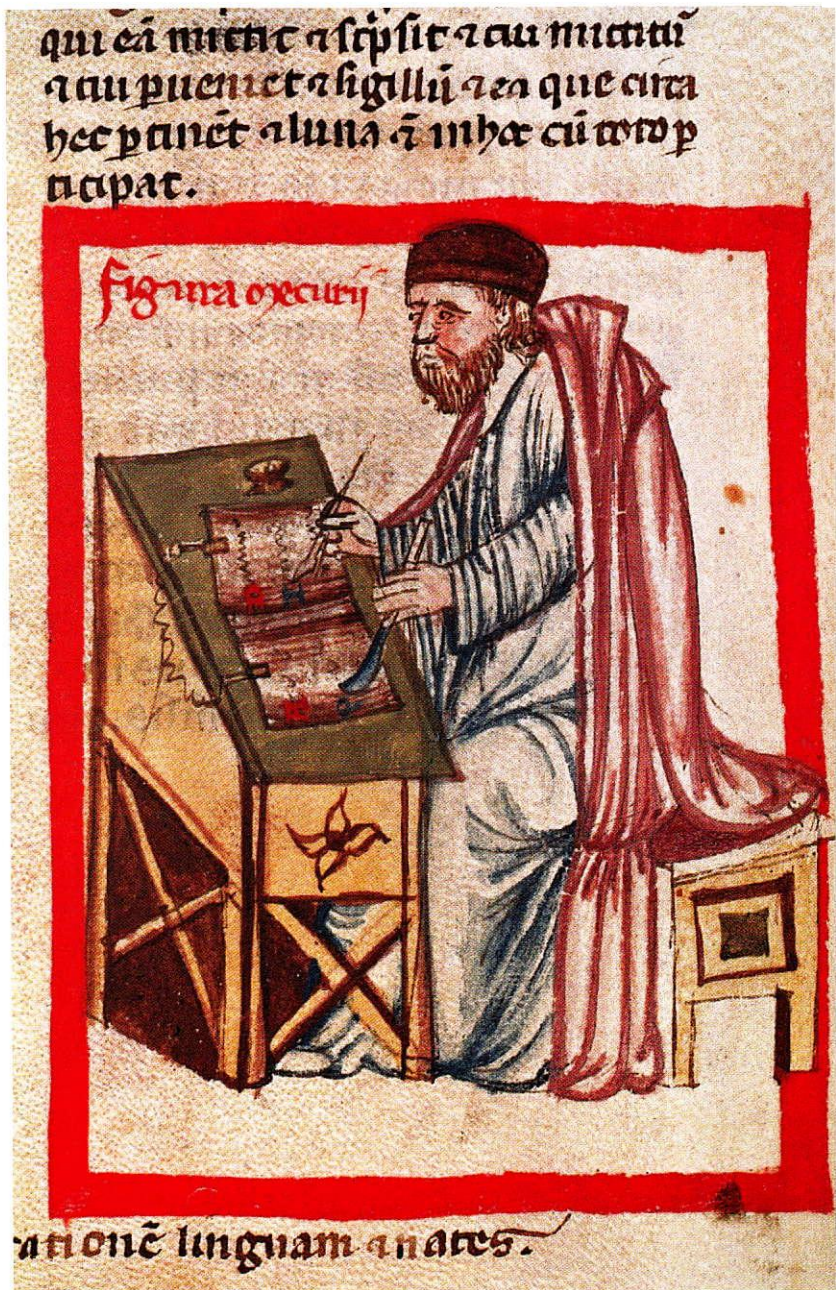 qui eā mittit ⁊ scͥpsit ⁊ cui mittitū
⁊ cui ꝑueniet ⁊ sigillū ⁊ ea que circa
hec ꝑtinēt ⁊ luna ē in hoc cū toto ꝑ
ticipat.
figura mecurij
rationē linguam ⁊ nates.